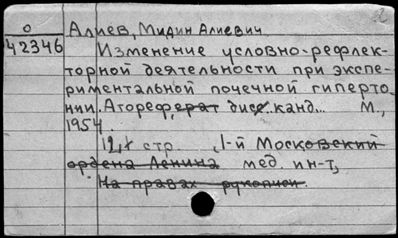 О Алиев, Мидин Алиевич
42346 Изменение условно-рефлек-
торной деятельности при экспе-
риментальной почечной гиперто-
нии. Автореферат дисс. канд... М.,
1954.
12, стр. 1-й Московский
ордена Ленина мед. ин-т,
На правах рукописи.